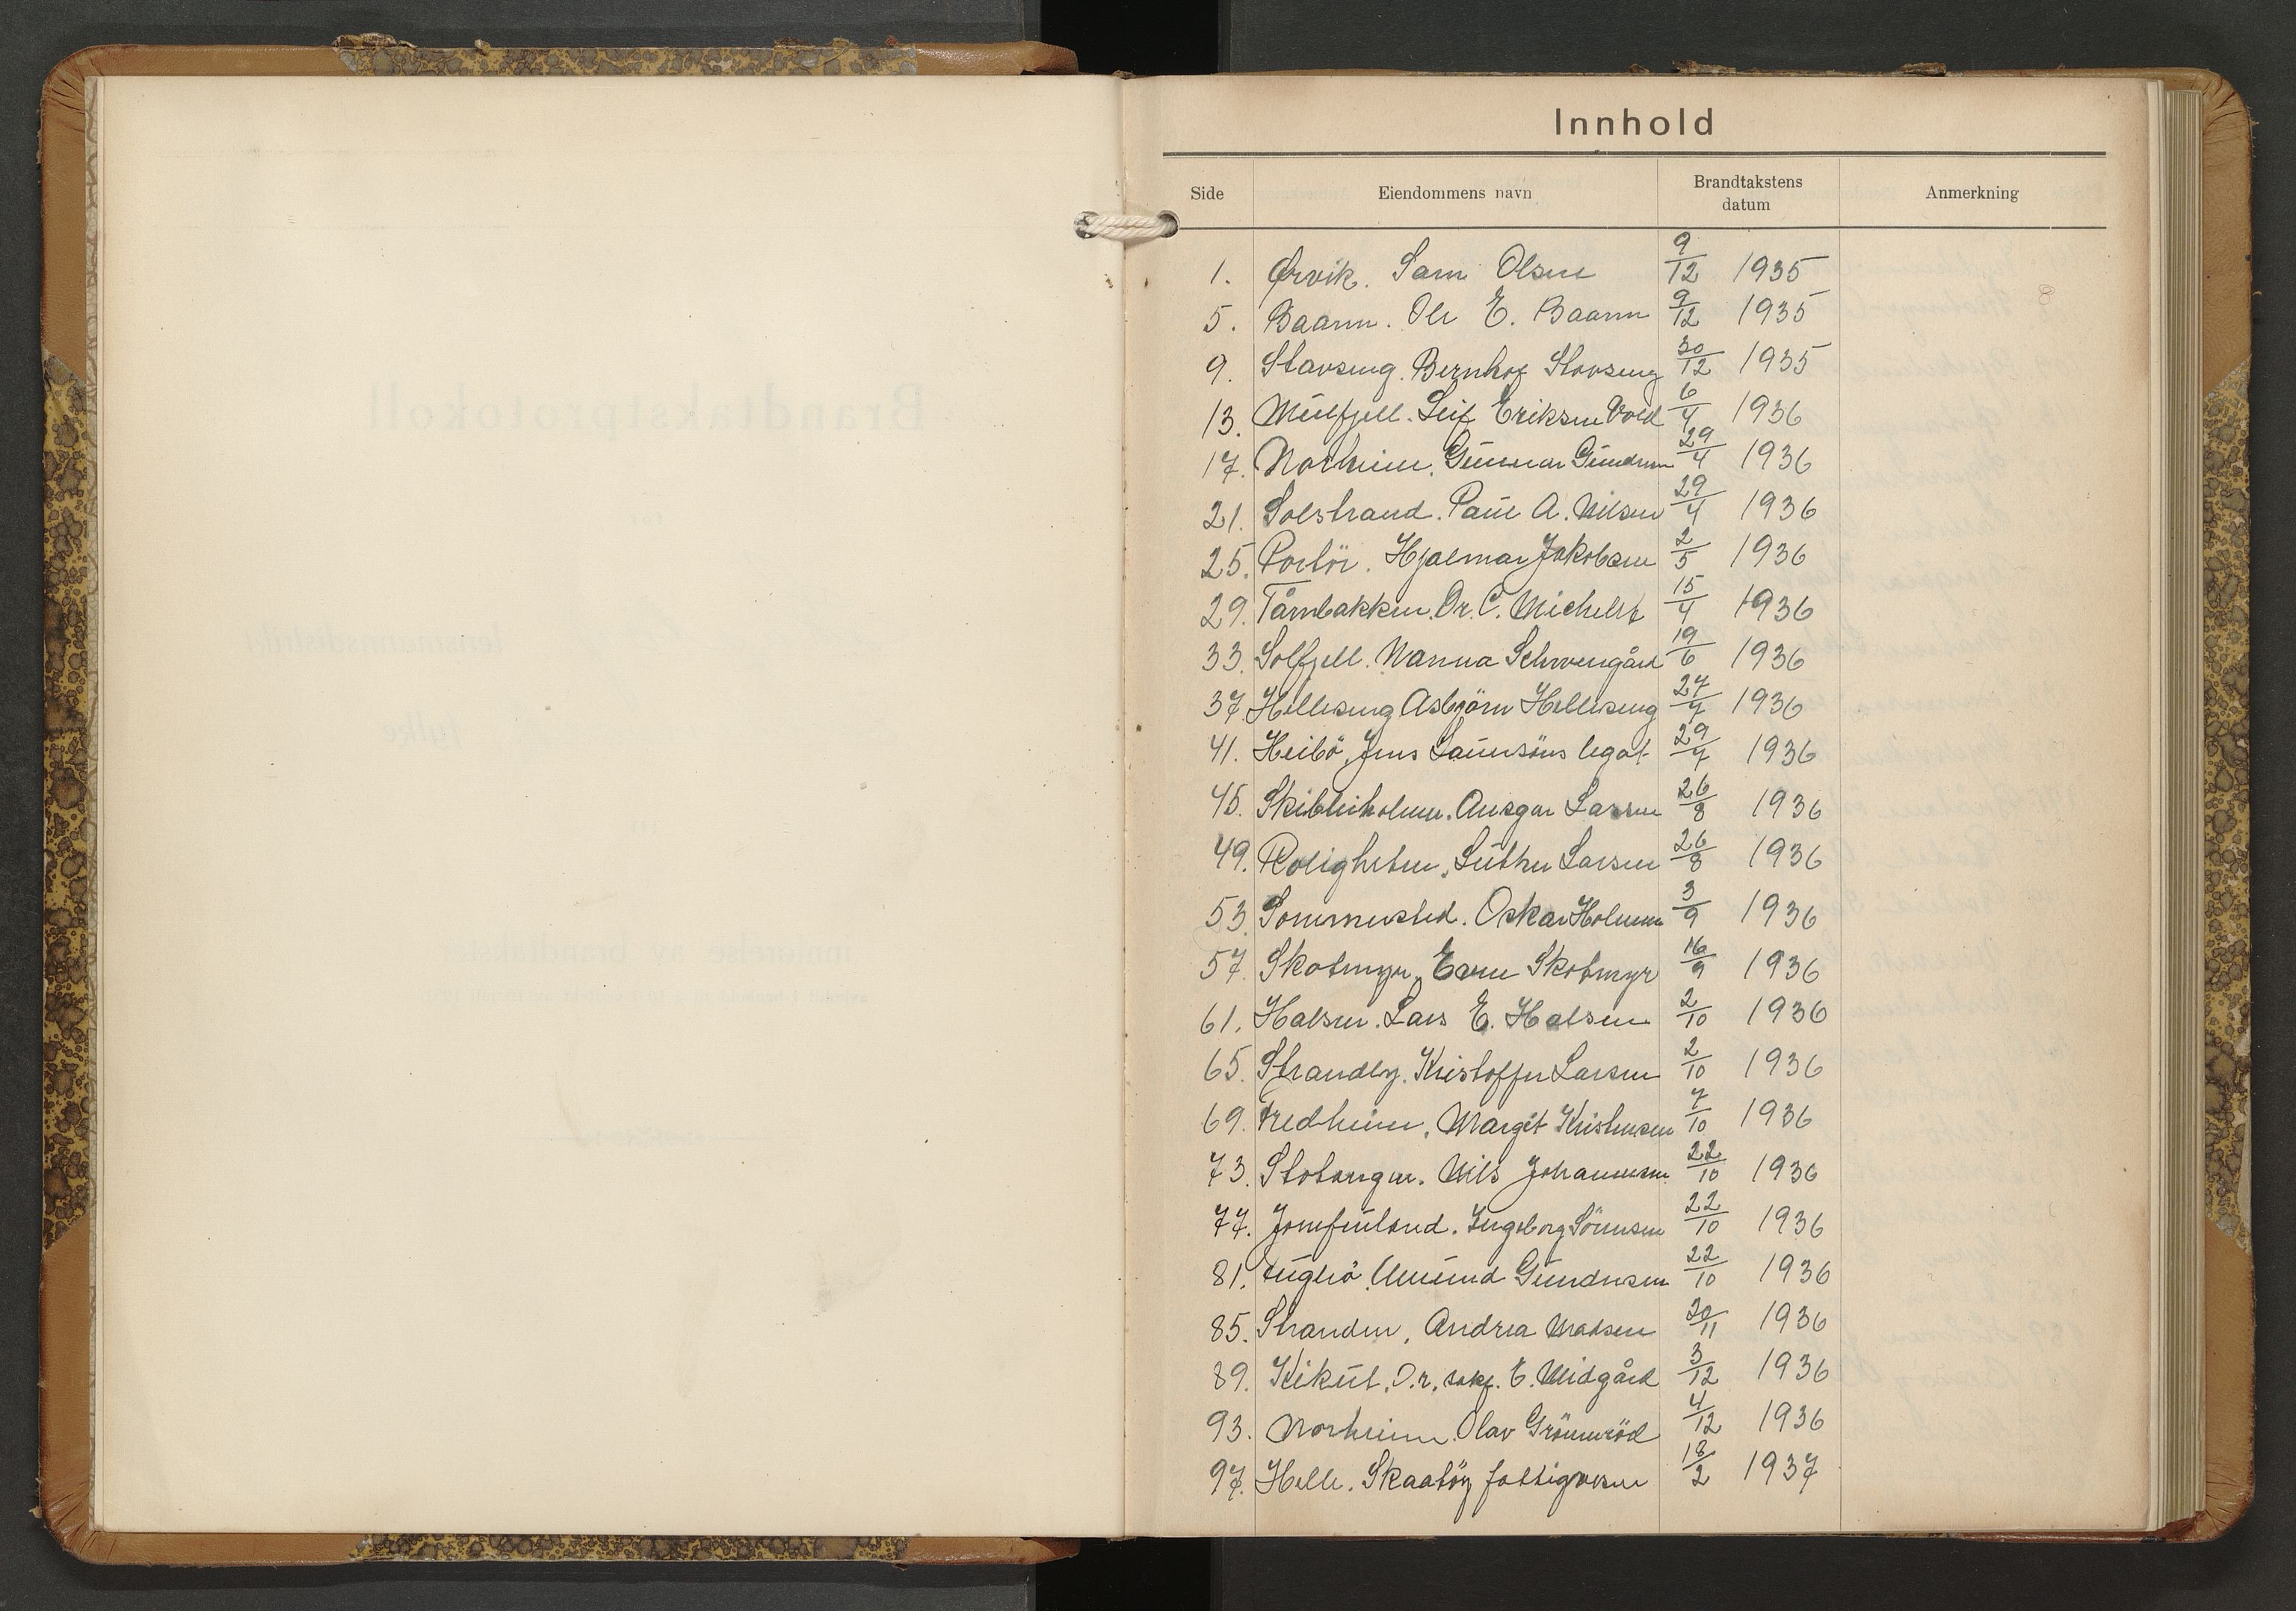 Innhold
Side Eiendommens navn Brandtakstens datum Anmerkning
1. Ørvik. Sam Olsen 9/12 1935
5. Baann. Ole E. Baann 9/12 1935
9. Stavseng. Bernhof Stavseng 30/12 1935
13. Mulfjell. Leif Eriksen Vold 6/4 1936
17. Norheim. Gunnar Gundersen 29/4 1936
21. Solstrand. Paul A. Nilsen 29/4 1936
25. Portör. Hjalmar Jakobsen 2/5 1936
29. Tårnbakken. Dr. C. Michelet 15/4 1936
33. Solfjell. Nanna Schwengård 19/6 1936
37. Helleseng Asbjörn Helleseng 27/7 1936
41. Heibö, Jens Lauersöns legat 29/7 1936
45. Skibleiholmen. Ansgar Larsen 26/8 1936
49. Roligheten, Luther Larsen 26/8 1936
53. Sommersted. Oskar Holmen 3/9 1936
57. Skotmyr, Even Skotmyr 16/9 1936
61. Halsen. Lars E. Halsen 2/10 1936
65. Strandby. Kristoffer Larsen 2/10 1936
69. Fredheim, Margit Kristensen 7/10 1936
73. Stotangen. Nils Johannesen 22/10 1936
77. Jomfruland. Ingeborg Sörensen 22/10 1936
81. Fuglö. Amund Gundersen 22/10 1936
85. Stranden, Andrea Madsen 20/11 1936
89. Kikut, O.r. sakf. E. Midgård 3/12 1936
93. Norheim. Olav Grönneröd 4/12 1936
97. Helle. Skaatöy fattigvesen 18/2 1937